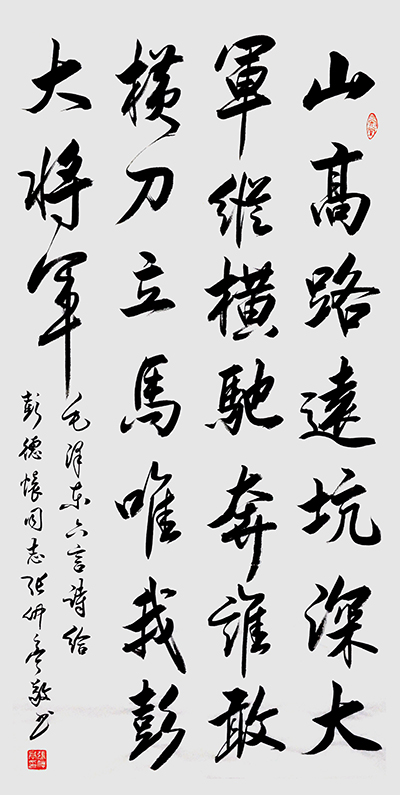 山高路遠坑深大
軍縱橫馳奔誰敢
橫刀立馬唯我彭
大将軍
毛泽东六言詩给
彭德懷同志张敬书